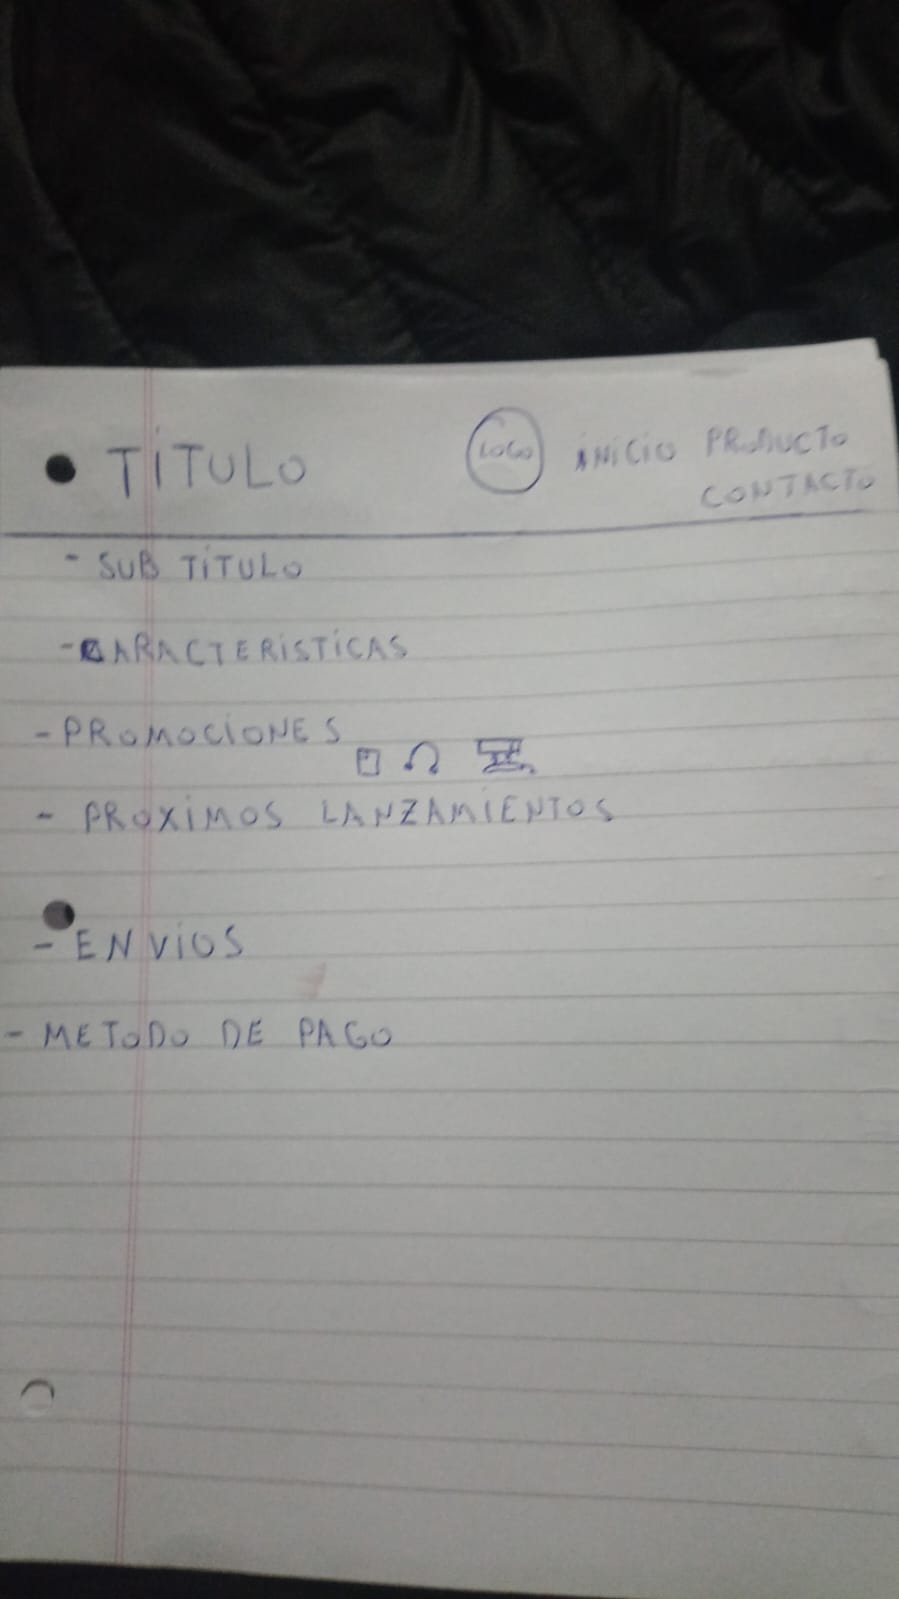 TÍTULO LOGO INICIO PRODUCTO
CONTACTO
- SUB TITULO
- CARACTERISTICAS
- PROMOCIONES
- PROXIMOS LANZAMIENTOS
- ENVIOS
- METODO DE PAGO